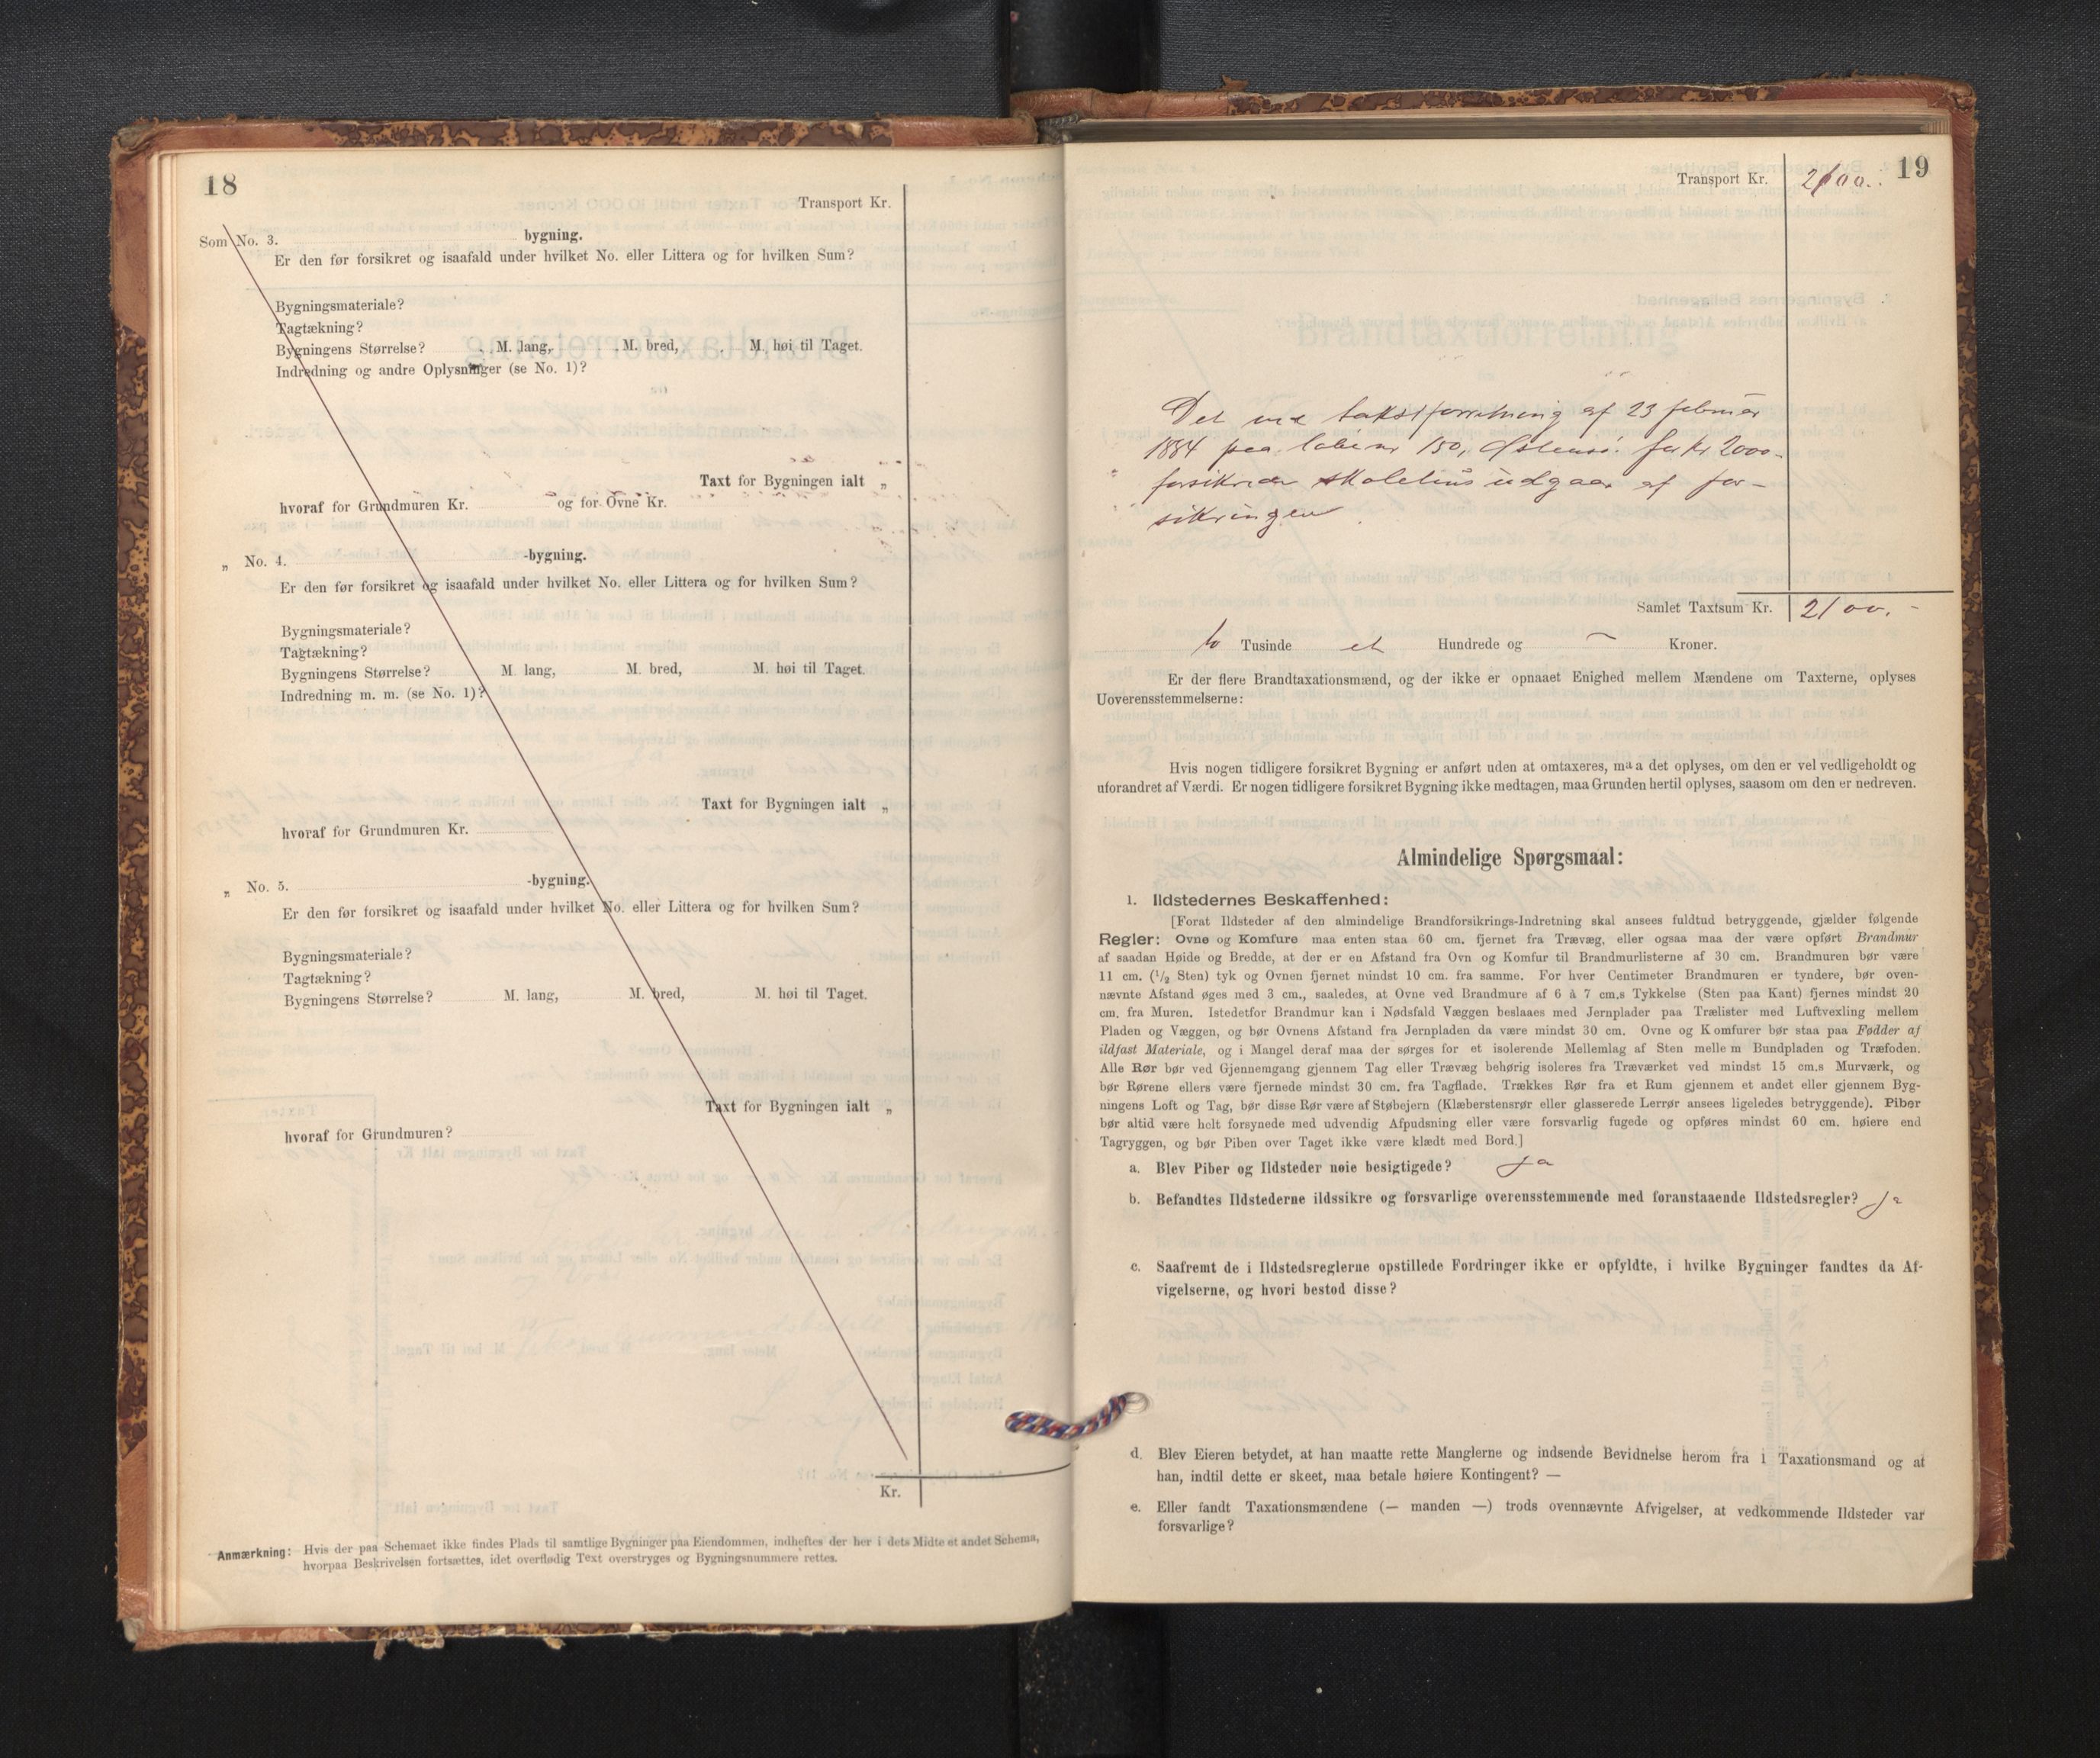 18
Transport Kr.
Som No. 3. bygning.
Er den før forsikret og isaafald under hvilket No. eller Littera og for hvilken Sum?
Bygningsmateriale?
Tagtækning?
Bygningens Størrelse? M. lang, M. bred, M. høi til Taget.
Indredning og andre Oplysninger (se No. 1)?
Taxt for Bygningen ialt „
hvoraf for Grundmuren Kr. og for Ovne Kr.
„ No. 4. -bygning.
Er den før forsikret og isaafald under hvilket No. eller Littera og for hvilken Sum?
Bygningsmateriale?
Tagtækning?
Bygningens Størrelse? M. lang, M. bred, M. høi til Taget.
Indredning m. m. (se No. 1)?
Taxt for Bygningen ialt „
hvoraf for Grundmuren Kr.
„ No. 5. -bygning.
Er den før forsikret og isaafald under hvilket No. eller Littera og for hvilken Sum?
Bygningsmateriale?
Tagtækning?
Bygningens Størrelse? M. lang, M. bred, M. høi til Taget.
Taxt for Bygningen ialt „
hvoraf for Grundmuren?
Kr.
Anmærkning: Hvis der paa Schemaet ikke findes Plads til samtlige Bygninger paa Eiendommen, indheftes der her i dets Midte et andet Schema,
hvorpaa Beskrivelsen fortsættes, idet overflødig Text overstryges og Bygningsnummere rettes.
19
Transport Kr. 2100.
Det ved takstforretning af 23 februar
1884 paa løbenr 150, for kr 2000.
forsikrede skolehus udgaar af for-
sikringen
Samlet Taxtsum Kr. 2100. -
to Tusinde et Hundrede og — Kroner.
Er der flere Brandtaxationsmænd, og der ikke er opnaaet Enighed mellem Mændene om Taxterne, oplyses
Uoverensstemmelserne:
Hvis nogen tidligere forsikret Bygning er anført uden at omtaxeres, maa det oplyses, om den er vel vedligeholdt og
uforandret af Værdi. Er nogen tidligere forsikret Bygning ikke medtagen, maa Grunden hertil oplyses, saasom om den er nedreven.
Almindelige Spørgsmaal:
1. Ildstedernes Beskaffenhed:
[Forat Ildsteder af den almindelige Brandforsikrings-Indretning skal ansees fuldtud betryggende, gjælder følgende
Regler: Ovne og Komfure maa enten staa 60 cm. fjernet fra Trævæg, eller ogsaa maa der være opført Brandmur
af saadan Høide og Bredde, at der er en Afstand fra Ovn og Komfur til Brandmurlisterne af 30 cm. Brandmuren bør være
11 cm. (1/2 Sten) tyk og Ovnen fjernet mindst 10 cm. fra samme. For hver Centimeter Brandmuren er tyndere, bør oven-
nævnte Afstand øges med 3 cm., saaledes, at Ovne ved Brandmure af 6 à 7 cm.s Tykkelse (Sten paa Kant) fjernes mindst 20
cm. fra Muren. Istedetfor Brandmur kan i Nødsfald Væggen beslaaes med Jernplader paa Trælister med Luftvexling mellem
Pladen og Væggen, og bør Ovnens Afstand fra Jernpladen da være mindst 30 cm. Ovne og Komfurer bør staa paa Fødder af
ildfast Materiale, og i Mangel deraf maa der sørges for et isolerende Mellemlag af Sten mellem Bundpladen og Træfoden.
Alle Rør bør ved Gjennemgang gjennem Tag eller Trævæg behørig isoleres fra Træværket ved mindst 15 cm.s Murværk, og
bør Rørene ellers være fjernede mindst 30 cm. fra Tagflade. Trækkes Rør fra et Rum gjennem et andet eller gjennem Byg-
ningens Loft og Tag, bør disse Rør være af Støbejern (Klæberstensrør eller glasserede Lerrør ansees ligeledes betryggende). Piber
bør altid være helt forsynede med udvendig Afpudsning eller være forsvarlig fugede og opføres mindst 60 cm. høiere end
Tagryggen, og bør Piben over Taget ikke være klædt med Bord.]
a. Blev Piber og Ildsteder nøie besigtigede? Ja
b. Befandtes Ildstederne ildssikre og forsvarlige overensstemmende med foranstaaende Ildstedsregler? Ja
c. Saafremt de i Ildstedsreglerne opstillede Fordringer ikke er opfyldte, i hvilke Bygninger fandtes da Af-
vigelserne, og hvori bestod disse?
d. Blev Eieren betydet, at han maatte rette Manglerne og indsende Bevidnelse herom fra 1 Taxationsmand og at
han, indtil dette er skeet, maa betale høiere Kontingent? —
e. Eller fandt Taxationsmændene (— manden —) trods ovennævnte Afvigelser, at vedkommende Ildsteder var
forsvarlige?